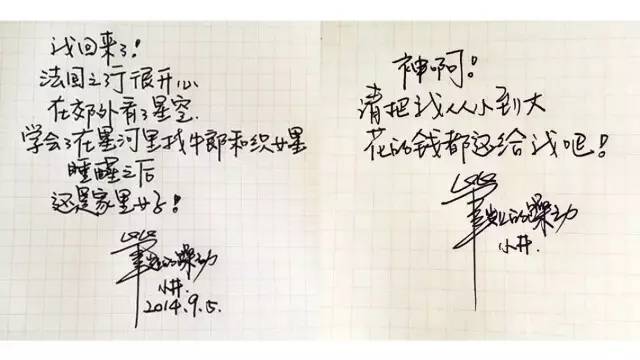 我回来了!
法国之行很开心
在郊外看了星空.
学会了在星河里找牛郎和织女星
睡醒之后
还是家里好!
的躁动
小井.
2014.9.5.
神啊!
请把我从小到大
花的钱都还给我吧!
的躁动
小井.